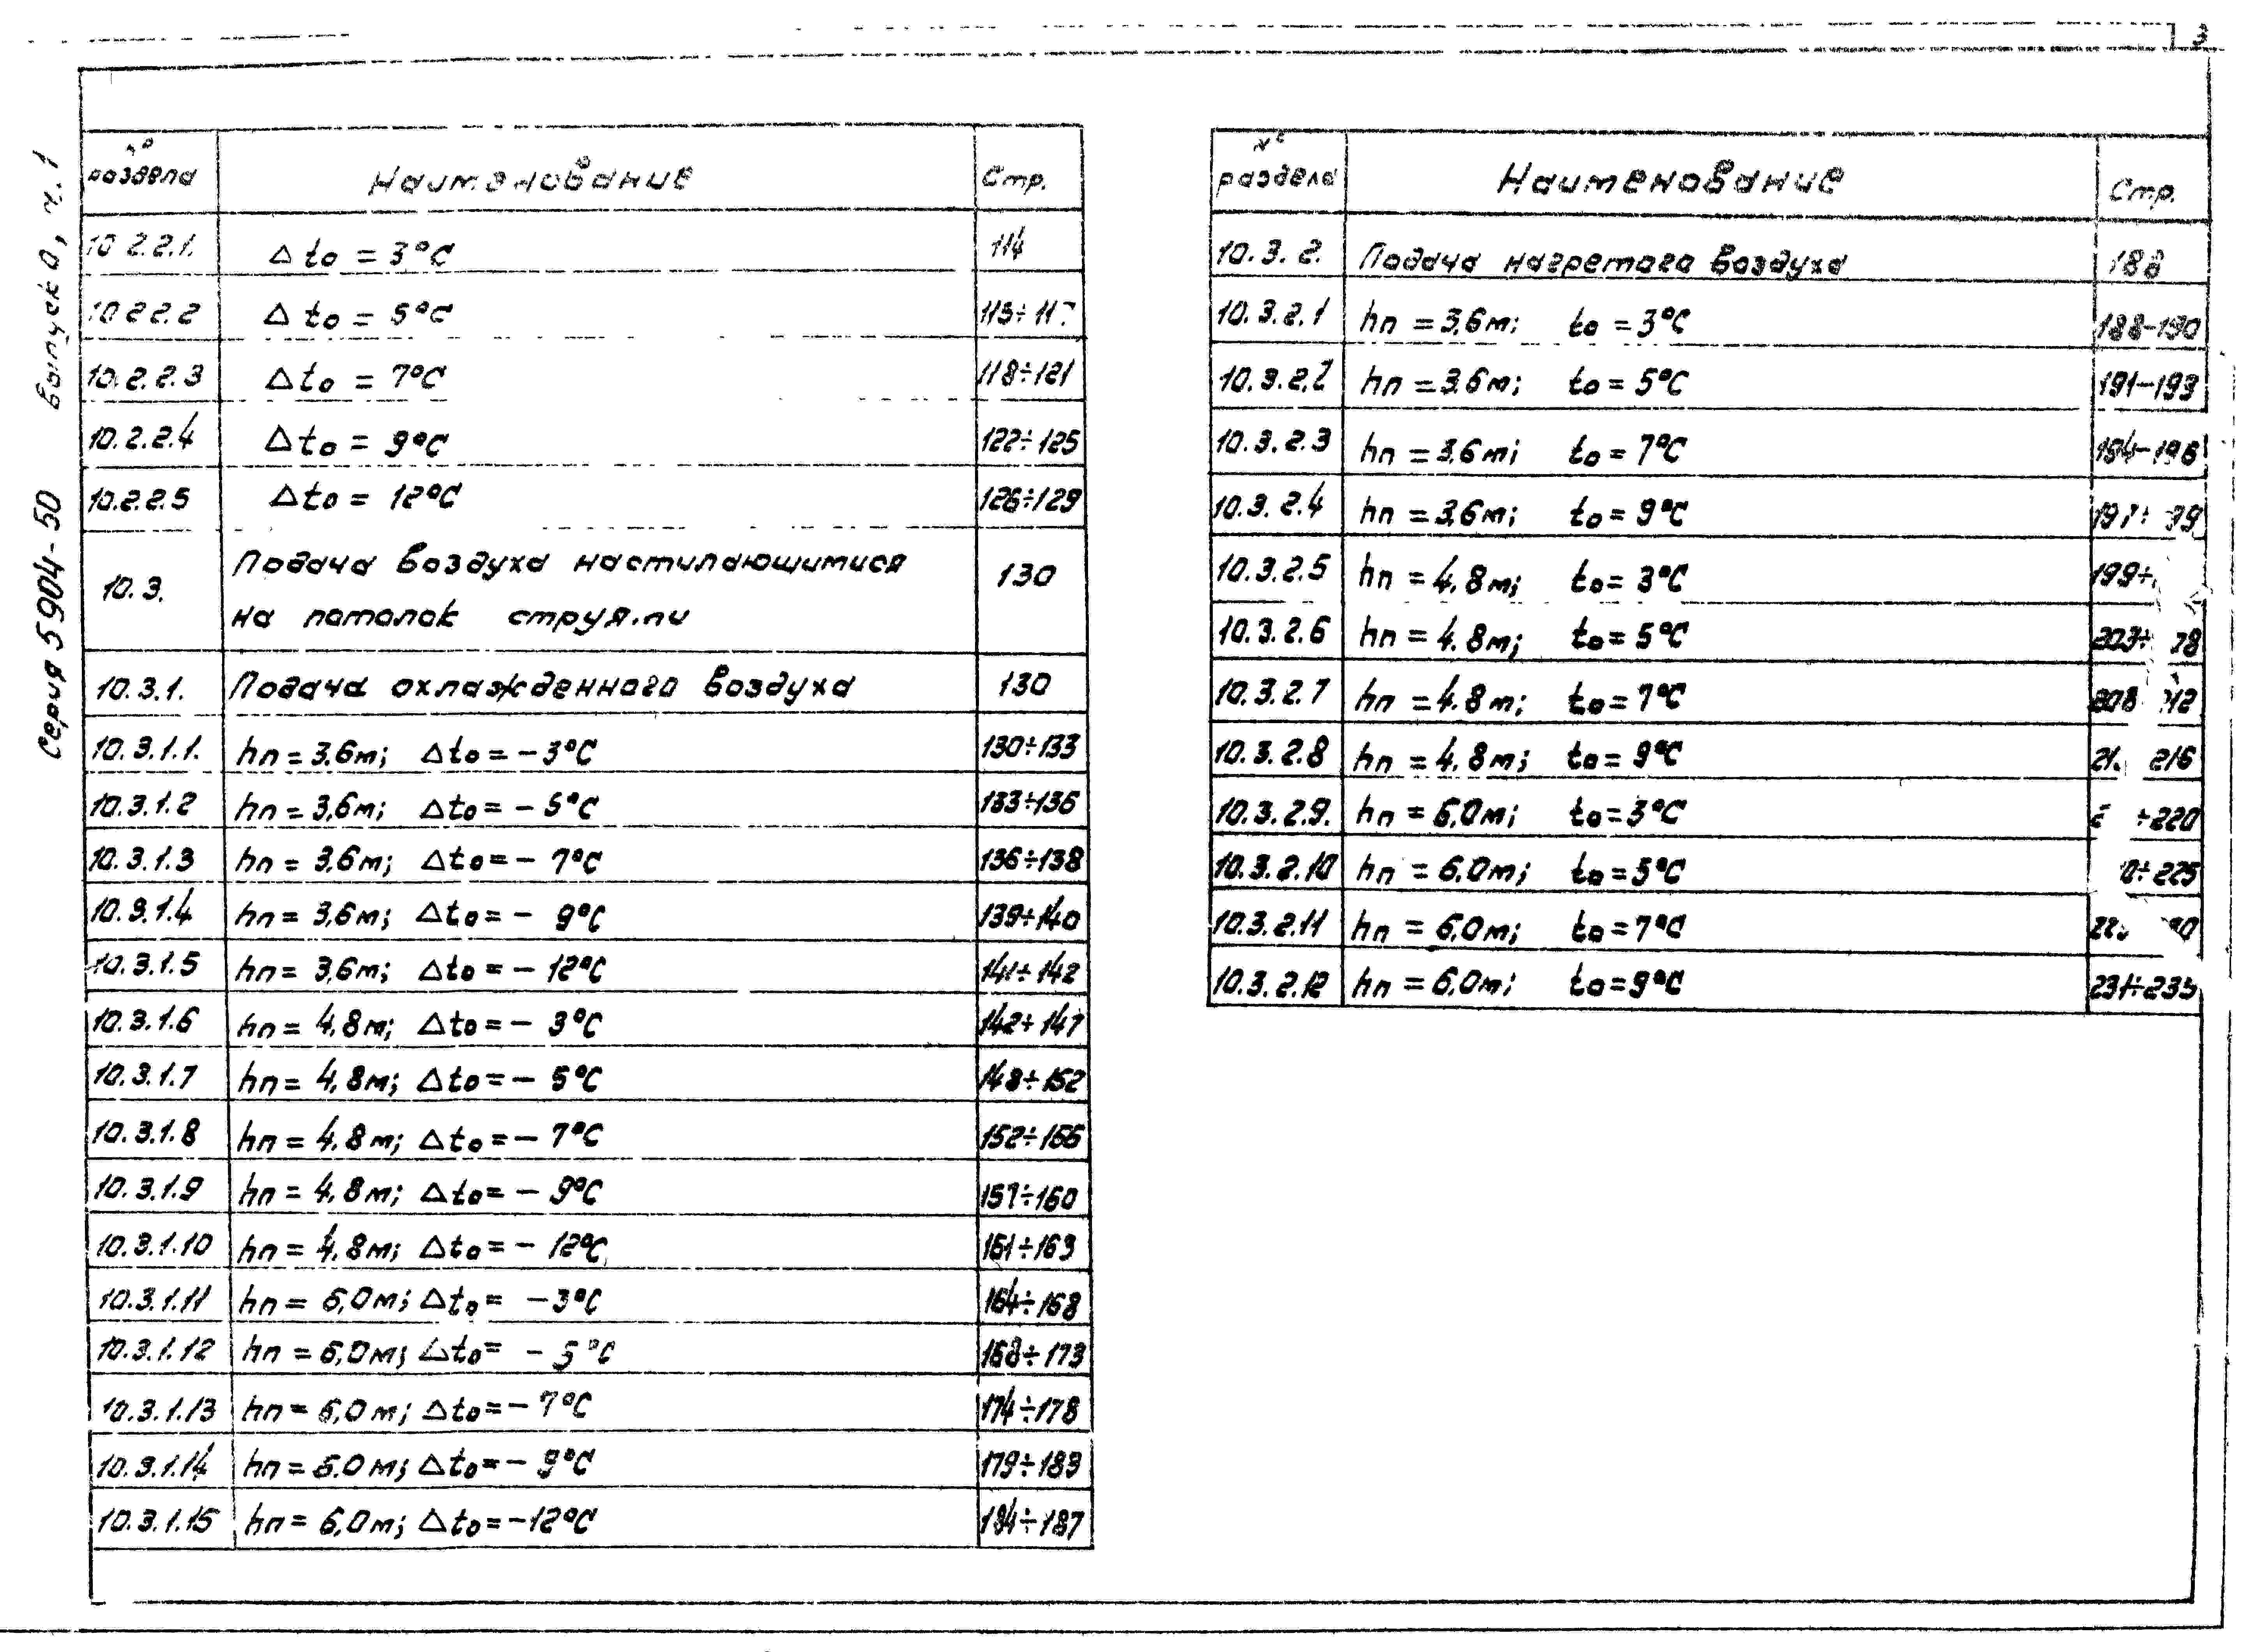 3
Серия 5904-50 Выпуск 0, ч.1
№ раздела Наименование Стр.
10.2.2.1. Δto = 3°C 114
10.2.2.2 Δto = 5°C
10.2.2.3 Δto = 7°C 118÷121
10.2.2.4 Δto = 9°C 122÷125
10.2.2.5 Δto = 12°C 126÷129
10.3. Подача воздуха настилающимися 130
на потолок струями
10.3.1. Подача охлажденного воздуха 130
10.3.1.1. hп = 3,6м; Δto = -3°C 130÷133
10.3.1.2 hп = 3,6м; Δto = -5°C 133÷136
10.3.1.3 hп = 3,6м; Δto = -7°C 136÷138
10.3.1.4 hп = 3,6м; Δto = -9°C 139÷140
10.3.1.5 hп = 3,6м; Δto = -12°C 141÷142
10.3.1.6 hп = 4,8м; Δto = -3°C 142÷147
10.3.1.7 hп = 4,8м; Δto = -5°C 148÷152
10.3.1.8 hп = 4,8м; Δto = -7°C 152÷156
10.3.1.9 hп = 4,8м; Δto = -9°C 157÷160
10.3.1.10 hп = 4,8м; Δto = -12°C 161÷163
10.3.1.11 hп = 6,0м; Δto = -3°C 164÷168
10.3.1.12 hп = 6,0м; Δto = -5°C 168÷173
10.3.1.13 hп = 6,0м; Δto = -7°C 174÷178
10.3.1.14 hп = 6,0м; Δto = -9°C 179÷183
10.3.1.15 hп = 6,0м; Δto = -12°C 184÷187
№ раздела Наименование Стр.
10.3.2. Подача нагретого воздуха 188
10.3.2.1 hп = 3,6м; to = 3°C 188-190
10.3.2.2 hп = 3,6м; to = 5°C 191-193
10.3.2.3 hп = 3,6м; to = 7°C 194-196
10.3.2.4 hп = 3,6м; to = 9°C
10.3.2.5 hп = 4,8м; to = 3°C 199÷
10.3.2.6 hп = 4,8м; to = 5°C 203÷
10.3.2.7 hп = 4,8м; to = 7°C 208
10.3.2.8 hп = 4,8м; to = 9°C 216
10.3.2.9. hп = 6,0м; to = 3°C ÷220
10.3.2.10 hп = 6,0м; to = 5°C ÷225
10.3.2.11 hп = 6,0м; to = 7°C
10.3.2.12 hп = 6,0м; to = 9°C 231÷235